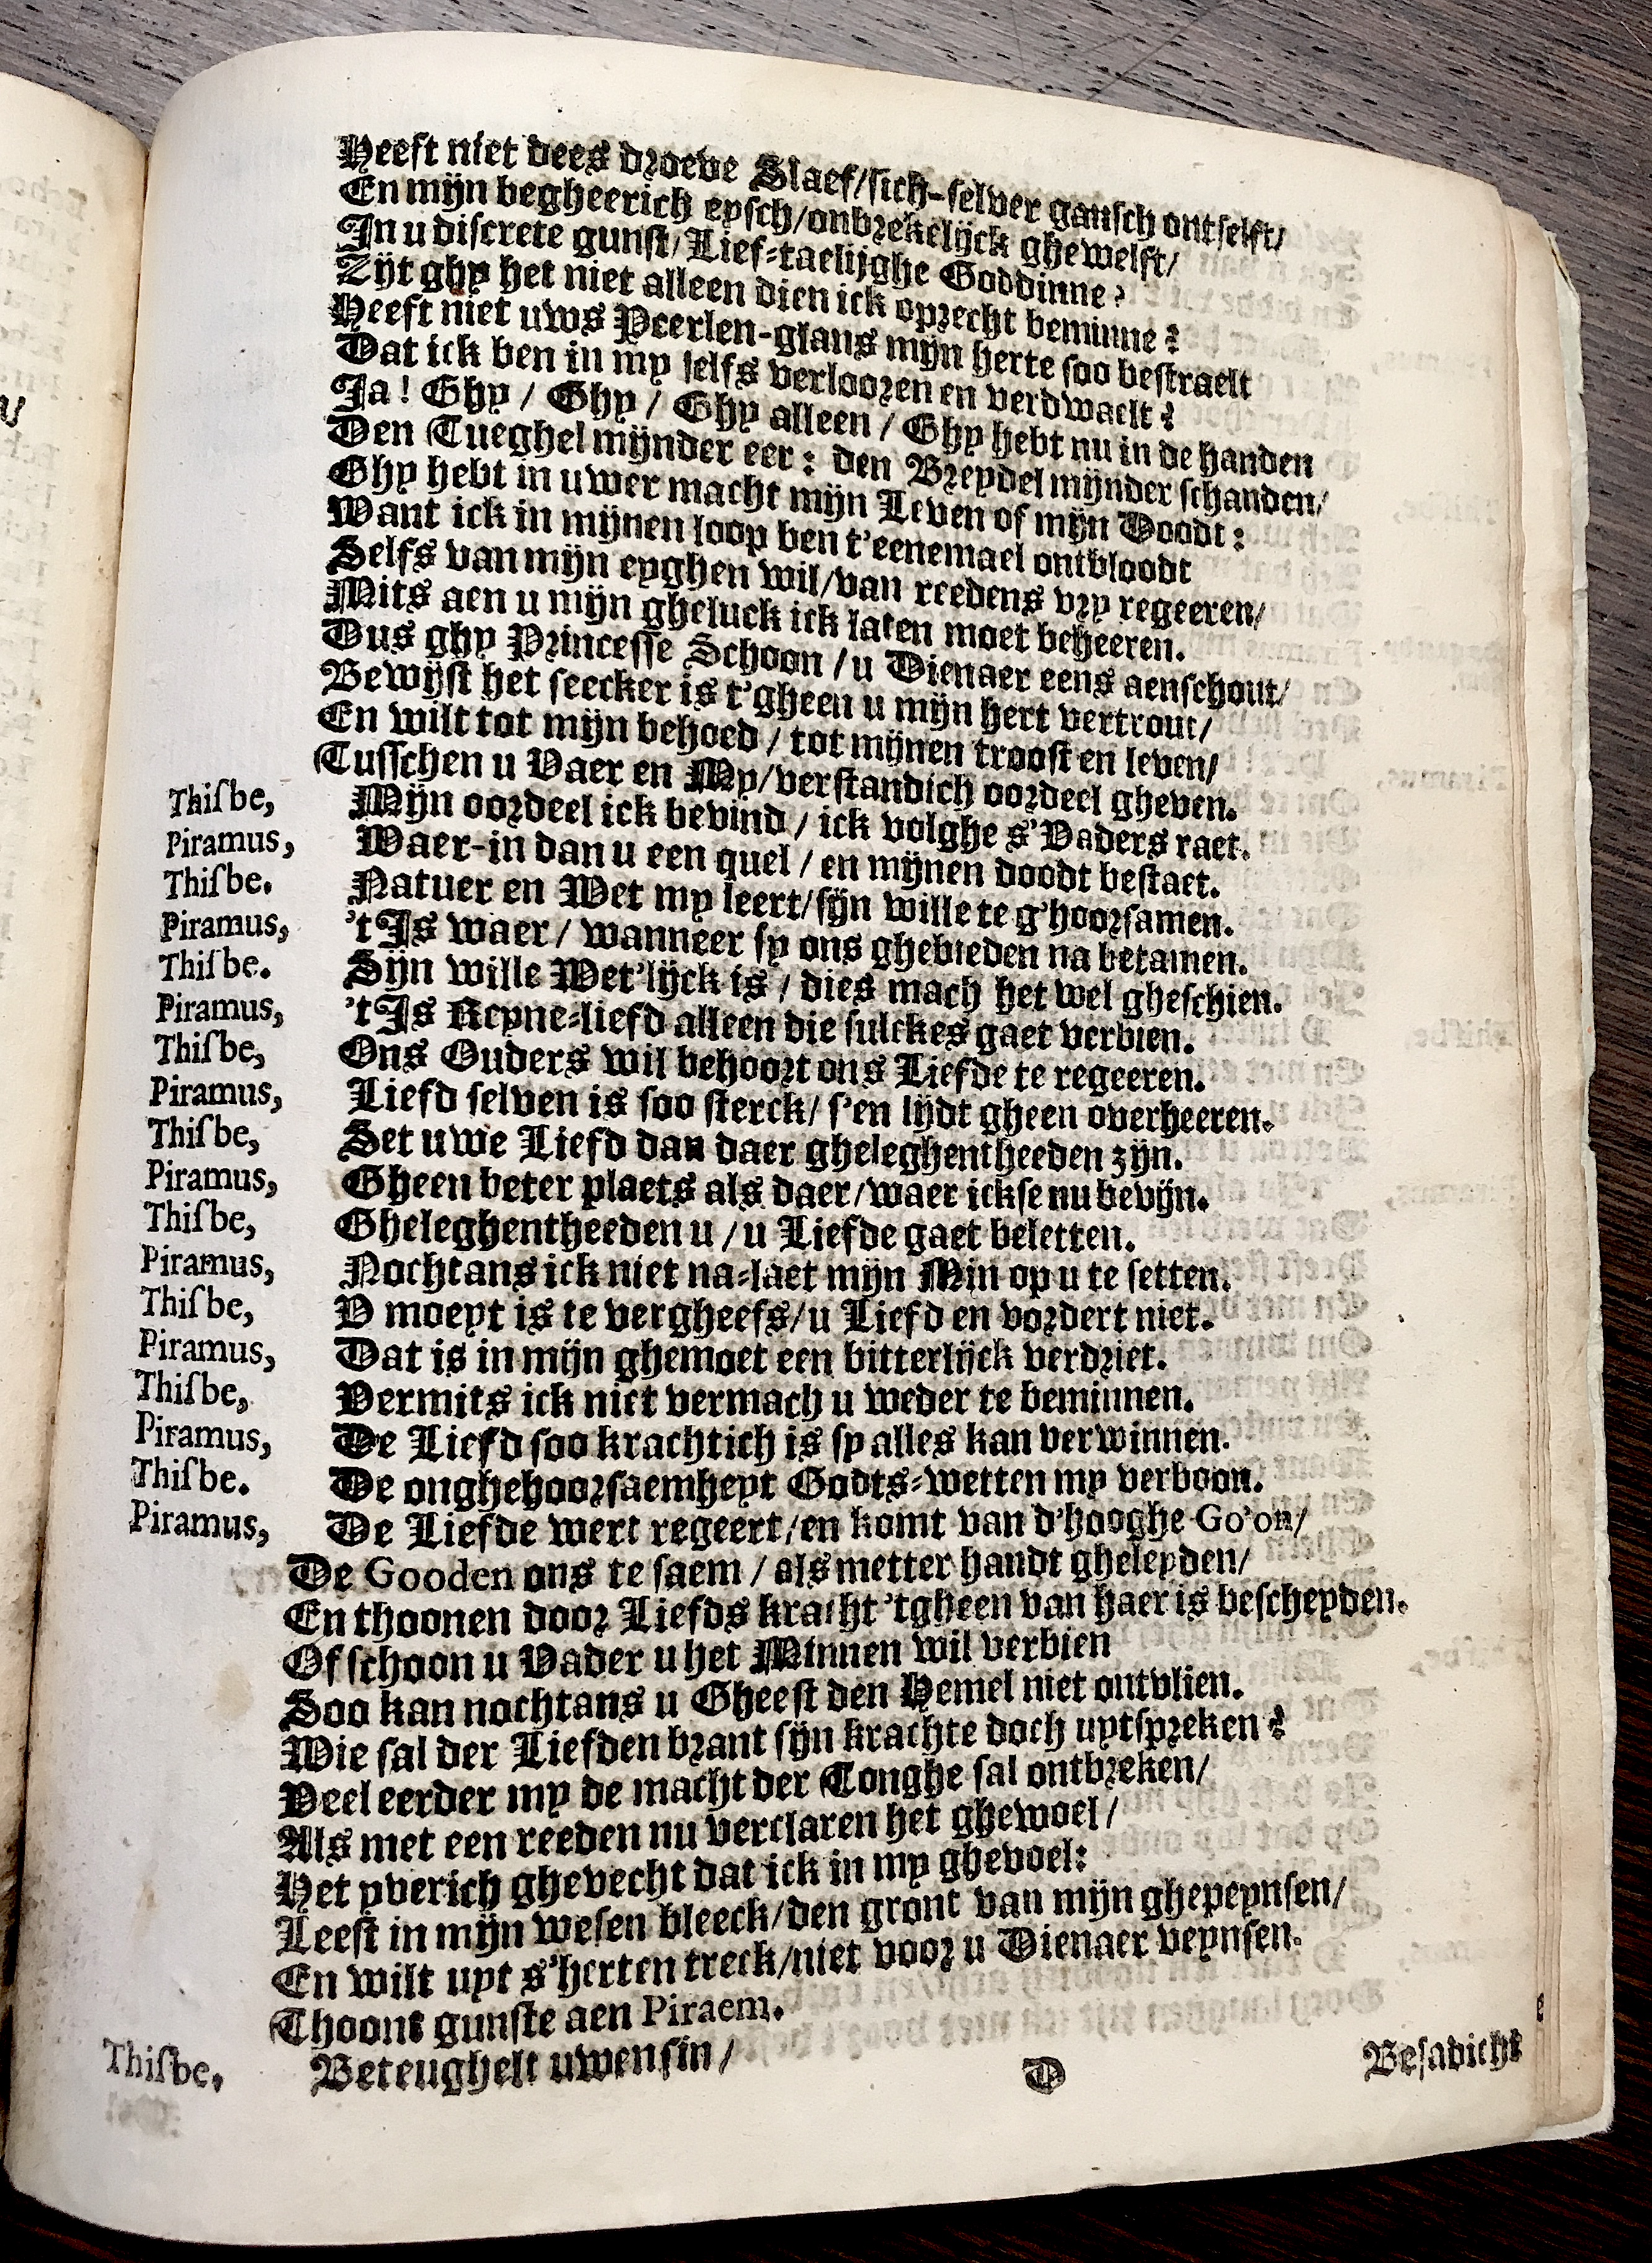 Heeft niet dees droeve Slaef/sich-selver gansch ontselft/
En mijn begheerich eysch/onbrekelijck ghewelft/
In u discrete gunst/Lief-taelijghe Goddinne?
Zijt ghy het niet alleen dien ick oprecht beminne?
Heeft niet uws Peerlen-glans mijn herte soo bestraelt
Dat ick ben in my selfs verlooren en verdwaelt?
Ja! Ghy / Ghy / Ghy alleen / Ghy hebt nu in de handen
Den Tueghel mijnder eer: den Breydel mijnder schanden/
Ghy hebt in uwer macht mijn Leven of mijn Doodt:
Want ick in mijnen loop ben t'eenemael ontbloodt
Selfs van mijn eyghen wil/van reedens vry regeeren/
Mits aen u mijn gheluck ick laten moet beheeren.
Dus ghy Princesse Schoon /u Dienaer eens aenschout/
Bewijst het seecker is t'gheen u mijn hert vertrout/
En wilt tot mijn behoed / tot mijnen troost en leven/
Tusschen u Vaer en My/verstandich oordeel gheven.
Thisbe, Mijn oordeel ick bevind / ick volghe s'Vaders raet.
Piramus, Waer-in dan u een quel / en mijnen doodt bestaet.
Thisbe. Natuer en Wet my leert/sijn wille te g'hoorsamen.
Piramus, 't Is waer / wanneer sy ons ghebieden na betamen.
Thisbe. Sijn wille Wet'lijck is / dies mach het wel gheschien.
Piramus, 't Is Reyne-liefd alleen die sulckes gaet verbien.
Thisbe, Ons Ouders wil behoort ons Liefde te regeeren.
Piramus, Liefd selven is soo sterck/ s'en lijdt gheen overheeren.
Thisbe, Set uwe Liefd dan daer gheleghentheeden zijn.
Piramus, Gheen beter plaets als daer/waer ickse nu bevijn.
Thisbe, Gheleghentheeden u /u Liefde gaet beletten.
Piramus, Nochtans ick niet na-laet mijn Min op u te setten.
Thisbe, V moeyt is te vergheefs/u Liefd en vordert niet.
Piramus, Dat is in mijn ghemoet een bitterlijck verdriet.
Thisbe, Vermits ick niet vermach u weder te beminnen.
Piramus, De Liefd soo krachtich is sy alles kan verwinnen.
Thisbe. De onghehoorsaemheyt Godts-wetten my verboon.
Piramus, De Liefde wert regeert/en komt van d'hooghe Go'on/
De Gooden ons te saem / als metter handt gheleyden/
En thoonen door Liefds kracht 'tgheen van haer is bescheyden.
Of schoon u Vader u het Minnen wil verbien
Soo kan nochtans u Gheest den Hemel niet ontvlien.
Wie sal der Liefden brant sijn krachte doch uytspreken?
Veel eerder my de macht der Tonghe sal ontbreken/
Als met een reeden nu verclaren het ghewoel/
Het yverich ghevecht dat ick in my ghevoel:
Leest in mijn wesen bleeck/den gront van mijn ghepeynsen/
En wilt uyt s'herten treck/niet voor u Dienaer veynsen.
Thoont gunste aen Piraem.
Thisbe, Beteughelt uwen sin/
D Besadicht